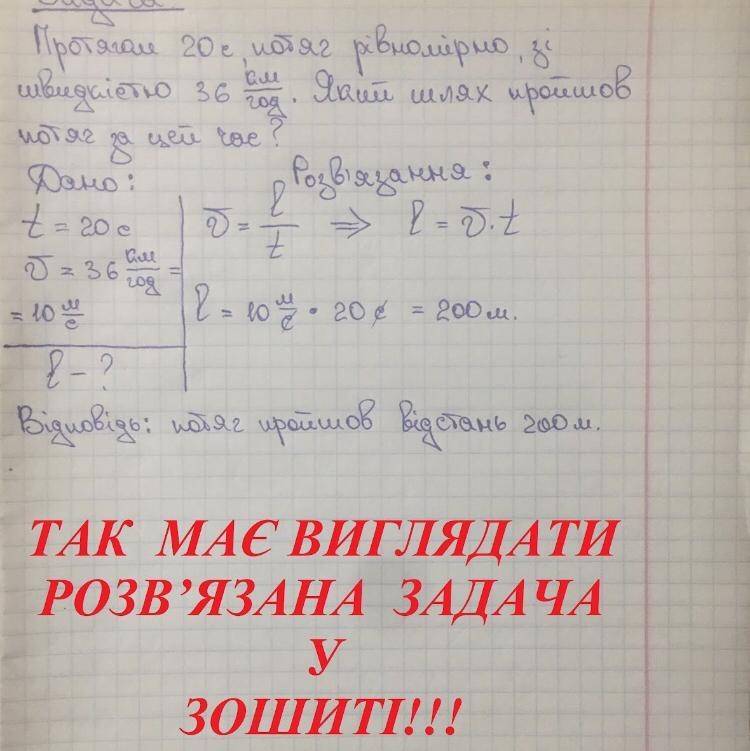 Задача
Протягом 20 с, потяг рівномірно, зі
швидкістю 36 км/год. Який шлях пройшов
потяг за цей час?
Дано: Розв'язання:
t = 20 с v = l/t ⇒ l = v·t
v = 36 км/год =
= 10 м/с l = 10 м/с · 20 с = 200 м.
l - ?
Відповідь: потяг пройшов відстань 200 м.
ТАК МАЄ ВИГЛЯДАТИ
РОЗВ’ЯЗАНА ЗАДАЧА
У
ЗОШИТІ!!!